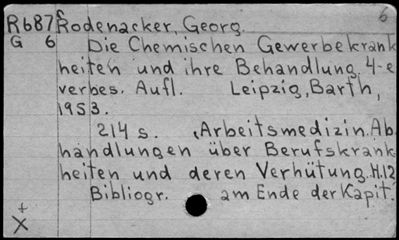 6
R687 Rodenacker, Georg.
G 6 Die Chemischen Gewerbekrank
heiten und ihre Behandlung. 4-e
verbes. Aufl. Leipzig, Barth,
1953.
214 s. (Arbeitsmedizin. Ab
handlungen über Berufskrank
heiten und deren Verhütung. H.12
Bibliogr. am Ende der Kapit.
+
X